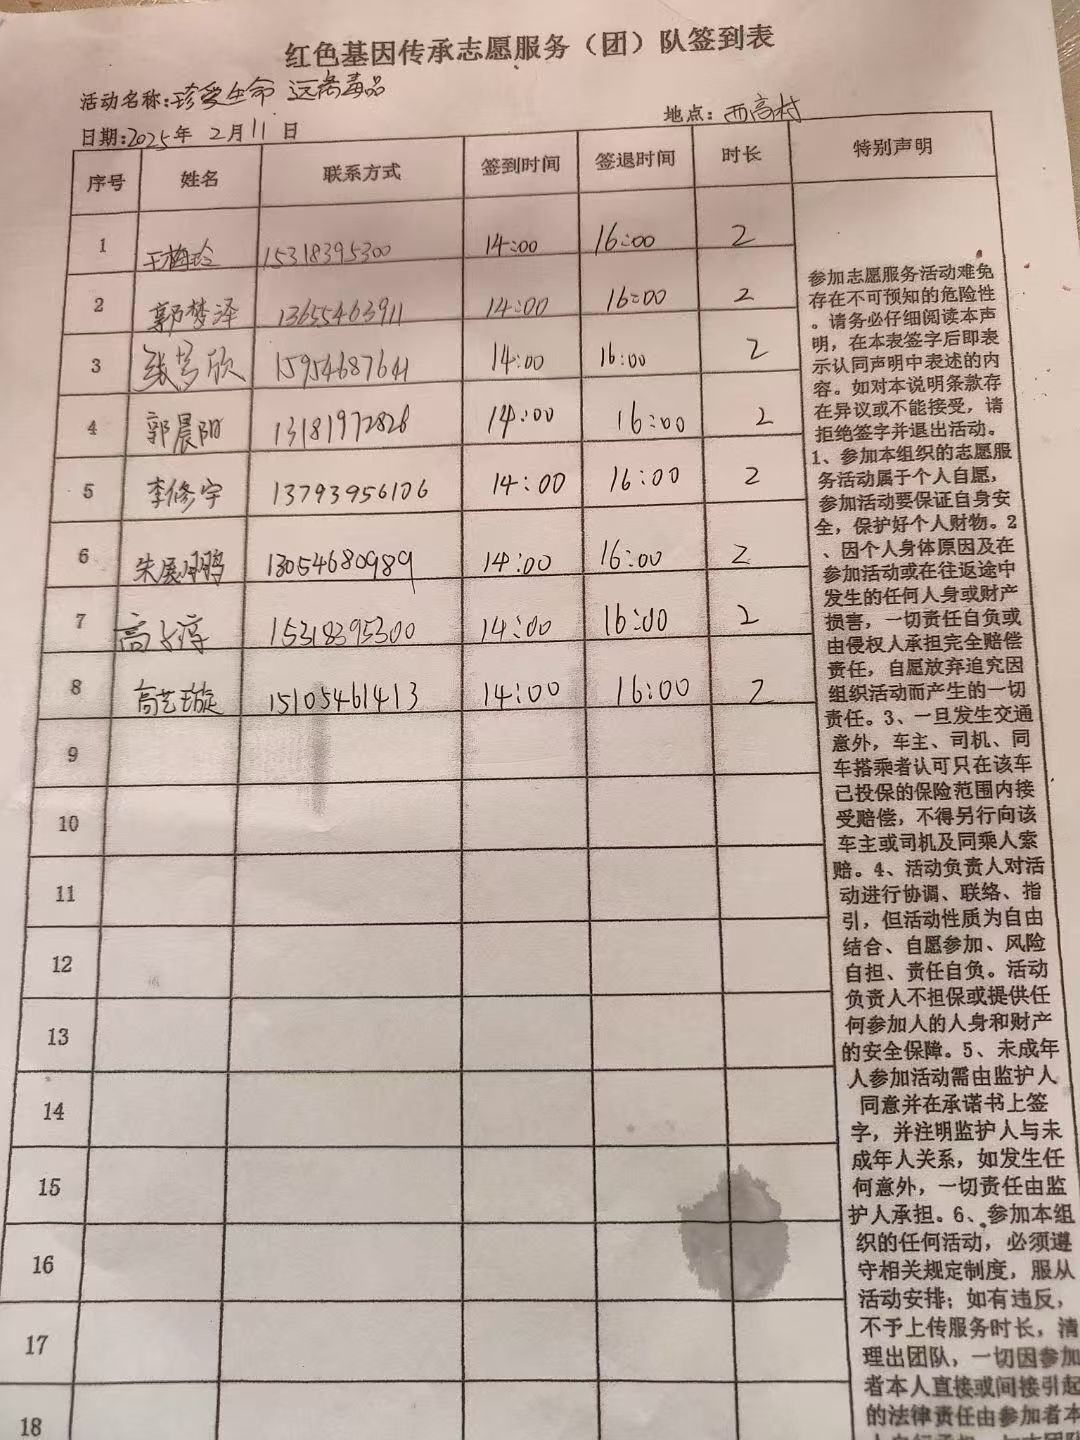 红色基因传承志愿服务（团）队签到表
活动名称:珍爱生命 远离毒品
日期:2025年 2月11日 地点:西高村
序号 姓名 联系方式 签到时间 签退时间 时长 特别声明
1 王梅玲 15318395300 14:00 16:00 2
2 郭梦泽 13655463911 14:00 16:00 2
3 欣 15954687641 14:00 16:00 2
4 郭晨阳 13181972828 14:00 16:00 2
5 李修宇 13793956106 14:00 16:00 2
6 朱展鹏 13054680989 14:00 16:00 2
7 高子淳 15318395300 14:00 16:00 2
8 高艺璇 15105461413 14:00 16:00 2
9
10
11
12
13
14
15
16
17
18
参加志愿服务活动难免
存在不可预知的危险性
。请务必仔细阅读本声
明，在本表签字后即表
示认同声明中表述的内
容。如对本说明条款存
在异议或不能接受，请
拒绝签字并退出活动。
1、参加本组织的志愿服
务活动属于个人自愿，
参加活动要保证自身安
全，保护好个人财物。2
、因个人身体原因及在
参加活动或在往返途中
发生的任何人身或财产
损害，一切责任自负或
由侵权人承担完全赔偿
责任，自愿放弃追究因
组织活动而产生的一切
责任。3、一旦发生交通
意外，车主、司机、同
车搭乘者认可只在该车
已投保的保险范围内接
受赔偿，不得另行向该
车主或司机及同乘人索
赔。4、活动负责人对活
动进行协调、联络、指
引，但活动性质为自由
结合、自愿参加、风险
自担、责任自负。活动
负责人不担保或提供任
何参加人的人身和财产
的安全保障。5、未成年
人参加活动需由监护人
同意并在承诺书上签
字，并注明监护人与未
成年人关系，如发生任
何意外，一切责任由监
护人承担。6、参加本组
织的任何活动，必须遵
守相关规定制度，服从
活动安排；如有违反，
不予上传服务时长，清
理出团队，一切因参加
者本人直接或间接引起
的法律责任由参加者本